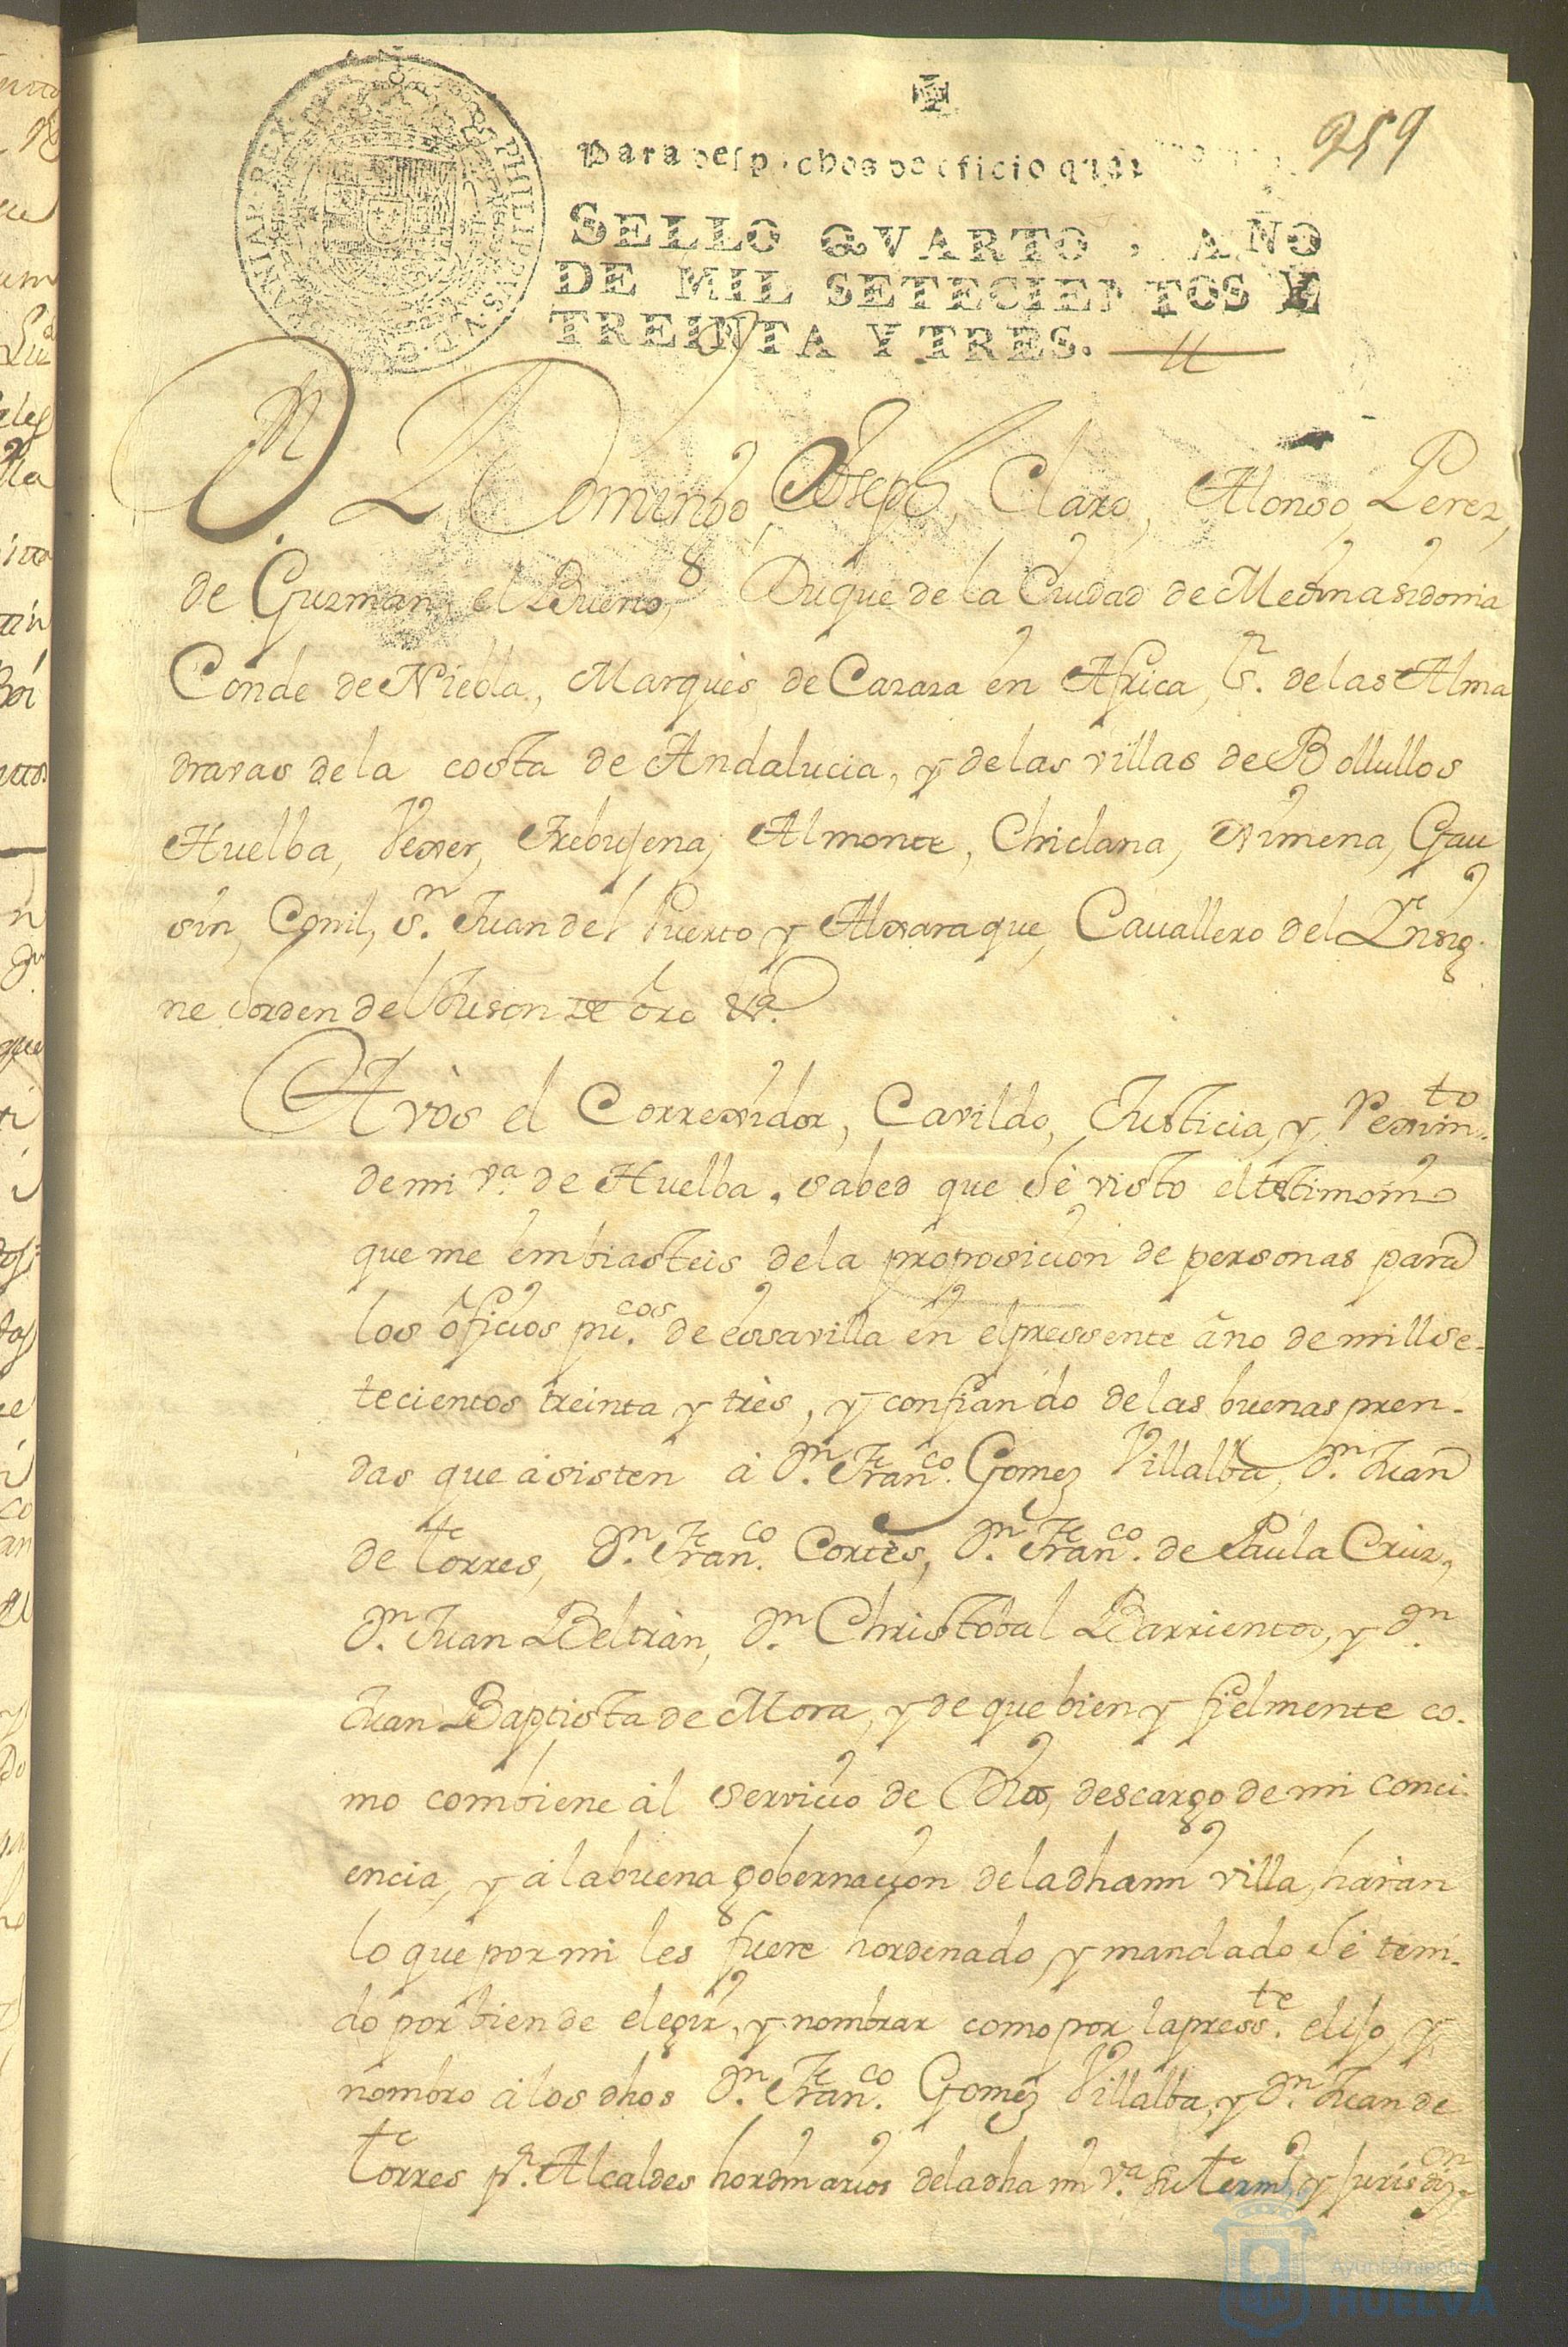 259
Para despachos de oficio
SELLO QVARTO, AÑO
DE MIL SETECIENTOS Y
TREINTA Y TRES.
PHILIPPVS V D G
HISPANIAR REX
Dn Domingo, Joseph, Claro, Alonso, Perez,
de Guzman, el Bueno, Duque de la Ciudad de Medinasidonia
Conde de Niebla, Marquès de Cazaza en Africa, Sr. de las Alma
dravas de la costa de Andalucia, y de las villas de Bollullos
Huelba, Vexer, Trebujena, Almonte, Chiclana, Ximena, Gau
sin, Conil, Sn. Juan del Puerto y Alxaraque, Cavallero del Ynsig-
ne orden del tuson de oro &a.
A vòs el Correxidor, Cavildo, Justicia, y Reximto.
de mi va. de Huelba. sabed que hè visto el testimonio
que me embiasteis de la proposicion de personas para
los oficios pucos. de essa villa en el pressente año de mill se-
tecientos treinta y très, y confiando de las buenas pren-
das que asisten à Dn. Franco. Gomez Villalba, Dn. Juan
de torres, Dn. Franco. Cortès, Dn. Franco. de Paula Cruz,
Dn. Juan Beltràn, Dn. Christobal Barrientos, y Dn.
Juan Baptista de Mora, y de que bien y fielmente co-
mo combiene àl servicio de Dios, descargo de mi conci-
encia, y à la buena gobernacion de la dha mi villa, haràn
lo que por mi les fuere hordenado, y mandado hè teni-
do por bien de elegir, y nombrar como por la presste. elijo, y
nombro à los dhos Dn. Franco. Gomez Villalba, y Dn. Juan de
torres pr. Alcaldes hordinarios de la dha mi va. su termo. y Jurisdizon.
Ayuntamiento
HUELVA